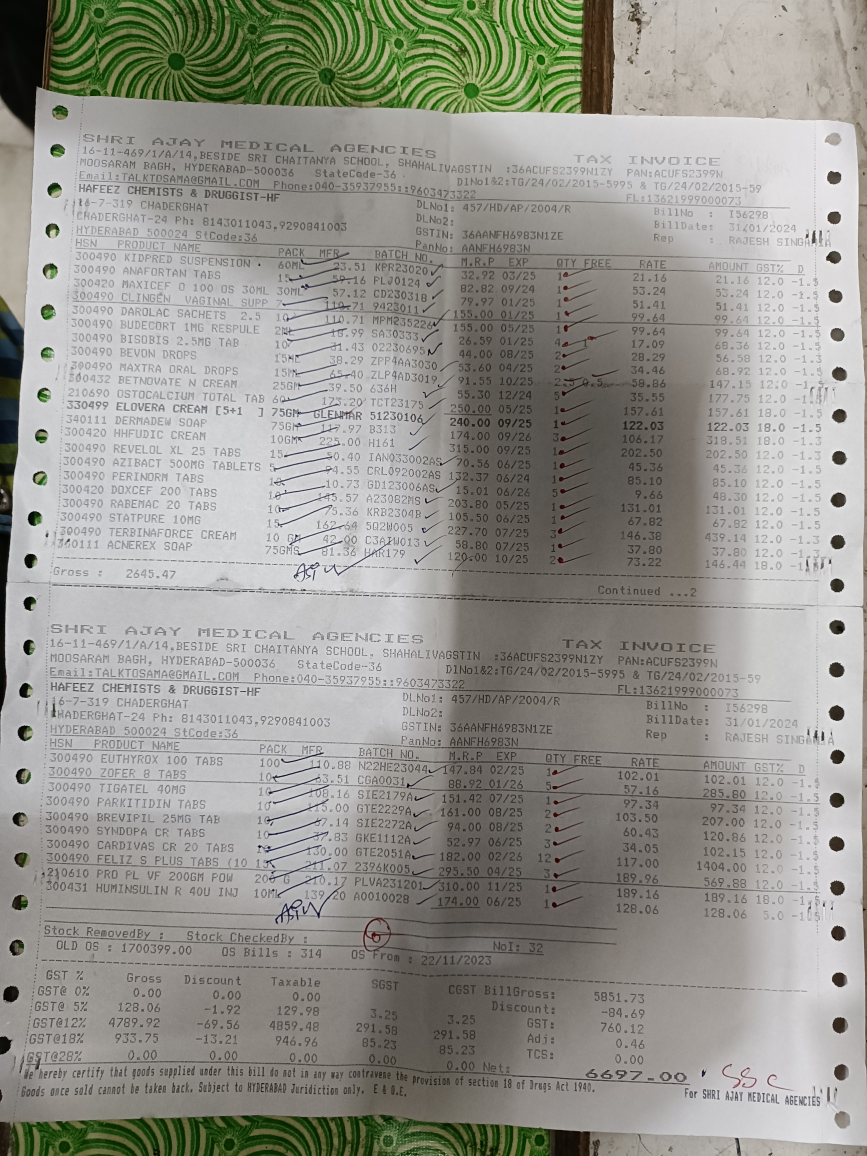 SHRI AJAY MEDICAL AGENCIES TAX INVOICE
16-11-469/1/A/14,BESIDE SRI CHAITANYA SCHOOL, SHAHALIVAGSTIN :36ACUFS2399N1ZY PAN:ACUFS2399N
MOOSARAM BAGH, HYDERABAD-500036 StateCode-36 DlNo1&2:TG/24/02/2015-5995 & TG/24/02/2015-59
Email:TALKTOSAMA@GMAIL.COM Phone:040-35937955::9603473322 FL:13621999000073
HAFEEZ CHEMISTS & DRUGGIST-HF DLNo1: 457/HD/AP/2004/R BillNo : I56298
16-7-319 CHADERGHAT DLNo2: BillDate: 31/01/2024
CHADERGHAT-24 Ph: 8143011043,9290841003 GSTIN: 36AANFH6983N1ZE Rep : RAJESH SINGHANIA
HYDERABAD 500024 StCode:36 PanNo: AANFH6983N
HSN PRODUCT NAME PACK MFR BATCH NO. M.R.P EXP QTY FREE RATE AMOUNT GST% D
300490 KIDPRED SUSPENSION 60ML 23.51 KPR23020 32.92 03/25 1 21.16 21.16 12.0 -1.5
300490 ANAFORTAN TABS 15 59.16 PLJ0124 82.82 09/24 1 53.24 53.24 12.0 -1.5
300420 MAXICEF O 100 OS 30ML 30ML 57.12 CD230318 79.97 01/25 1 51.41 51.41 12.0 -1.5
300490 CLINGEN VAGINAL SUPP 7 110.71 9423011 155.00 01/25 1 99.64 99.64 12.0 -1.5
300490 DAROLAC SACHETS 2.5 10 110.71 MPM235226 155.00 05/25 1 99.64 99.64 12.0 -1.5
300490 BUDECORT 1MG RESPULE 2ML 18.99 SA30333 26.59 01/25 4 17.09 68.36 12.0 -1.3
300490 BISOBIS 2.5MG TAB 10 31.43 02230695 44.00 08/25 2 28.29 56.58 12.0 -1.3
300490 BEVON DROPS 15ML 38.29 ZPP4AA3030 53.60 04/25 2 34.46 68.92 12.0 -1.5
300490 MAXTRA ORAL DROPS 15ML 65.40 ZLP4AD3019 91.55 10/25 2.5 0.5 58.86 147.15 12.0 -1.5
300432 BETNOVATE N CREAM 25GM 39.50 636H 55.30 12/24 5 35.55 177.75 12.0 -1.5
210690 OSTOCALCIUM TOTAL TAB 60 175.20 TCT23175 250.00 05/25 1 157.61 157.61 18.0 -1.5
330499 ELOVERA CREAM [5+1 ] 75GM GLENMAR 51230106 240.00 09/25 1 122.03 122.03 18.0 -1.5
340111 DERMADEW SOAP 75GM 117.97 B313 174.00 09/26 3 106.17 318.51 18.0 -1.3
300420 HHFUDIC CREAM 10GM 225.00 H161 315.00 09/25 1 202.50 202.50 12.0 -1.5
300490 REVELOL XL 25 TABS 15 50.40 IAN033002AS 70.56 06/25 1 45.36 45.36 12.0 -1.5
300490 AZIBACT 500MG TABLETS 5 94.55 CRL092002AS 132.37 06/24 1 85.10 85.10 12.0 -1.5
300490 PERINORM TABS 10 10.73 GD123006AS 15.01 06/26 5 9.66 48.30 12.0 -1.5
300420 DOXCEF 200 TABS 10 145.57 A230B2MS 203.80 05/25 1 131.01 131.01 12.0 -1.5
300490 RABEMAC 20 TABS 10 75.36 KRB2304B 105.50 06/25 1 67.82 67.82 12.0 -1.5
300490 STATPURE 10MG 15 162.64 5Q2W005 227.70 07/25 3 146.38 439.14 12.0 -1.5
300490 TERBINAFORCE CREAM 10 GM 42.00 C3AIW013 58.80 07/25 1 37.80 37.80 12.0 -1.3
300111 ACNEREX SOAP 75GMS 81.36 HAR179 120.00 10/25 2 73.22 146.44 18.0 -1.5
Gross : 2645.47
Continued ...2
SHRI AJAY MEDICAL AGENCIES TAX INVOICE
16-11-469/1/A/14,BESIDE SRI CHAITANYA SCHOOL, SHAHALIVAGSTIN :36ACUFS2399N1ZY PAN:ACUFS2399N
MOOSARAM BAGH, HYDERABAD-500036 StateCode-36 DlNo1&2:TG/24/02/2015-5995 & TG/24/02/2015-59
Email:TALKTOSAMA@GMAIL.COM Phone:040-35937955::9603473322 FL:13621999000073
HAFEEZ CHEMISTS & DRUGGIST-HF DLNo1: 457/HD/AP/2004/R BillNo : I56298
16-7-319 CHADERGHAT DLNo2: BillDate: 31/01/2024
CHADERGHAT-24 Ph: 8143011043,9290841003 GSTIN: 36AANFH6983N1ZE Rep : RAJESH SINGHANIA
HYDERABAD 500024 StCode:36 PanNo: AANFH6983N
HSN PRODUCT NAME PACK MFR BATCH NO. M.R.P EXP QTY FREE RATE AMOUNT GST% D
300490 EUTHYROX 100 TABS 100 110.88 N22HE23044 147.84 02/25 1 102.01 102.01 12.0 -1.5
300490 ZOFER 8 TABS 10 63.51 CGA0031 88.92 01/26 5 57.16 285.80 12.0 -1.5
300490 TIGATEL 40MG 10 108.16 SIE2179A 151.42 07/25 1 97.34 97.34 12.0 -1.5
300490 PARKITIDIN TABS 10 115.00 GTE2229A 161.00 08/25 2 103.50 207.00 12.0 -1.5
300490 BREVIPIL 25MG TAB 10 67.14 SIE2272A 94.00 08/25 2 60.43 120.86 12.0 -1.5
300490 SYNDOPA CR TABS 10 37.83 GKE1112A 52.97 06/25 3 34.05 102.15 12.0 -1.5
300490 CARDIVAS CR 20 TABS 130.00 GTE2051A 182.00 02/26 12 117.00 1404.00 12.0 -1.5
300490 FELIZ S PLUS TABS (10 15 211.07 2396K005 295.50 04/25 3 189.96 569.88 12.0 -1.5
210610 PRO PL VF 200GM POW 200 G 210.17 PLVA231201 310.00 11/25 1 189.16 189.16 18.0 -1.5
300431 HUMINSULIN R 40U INJ 10ML 139.20 A0010028 174.00 06/25 1 128.06 128.06 5.0 -1.5
Stock RemovedBy : Stock CheckedBy : NoI: 32
OLD OS : 1700399.00 OS Bills : 314 OS From : 22/11/2023
GST % Gross Discount Taxable SGST CGST BillGross: 5851.73
GST@ 0% 0.00 0.00 0.00 Discount: -84.69
GST@ 5% 128.06 -1.92 129.98 3.25 3.25 GST: 760.12
GST@12% 4789.92 -69.56 4859.48 291.58 291.58 Adj: 0.46
GST@18% 933.75 -13.21 946.96 85.23 85.23 TCS: 0.00
GST@28% 0.00 0.00 0.00 0.00 0.00 Net: 6697-00 SSC
We hereby certify that goods supplied under this bill do not in any way contravene the provision of section 18 of Drugs Act 1940.
Goods once sold cannot be taken back. Subject to HYDERABAD Juridiction only. E & O.E. For SHRI AJAY MEDICAL AGENCIES